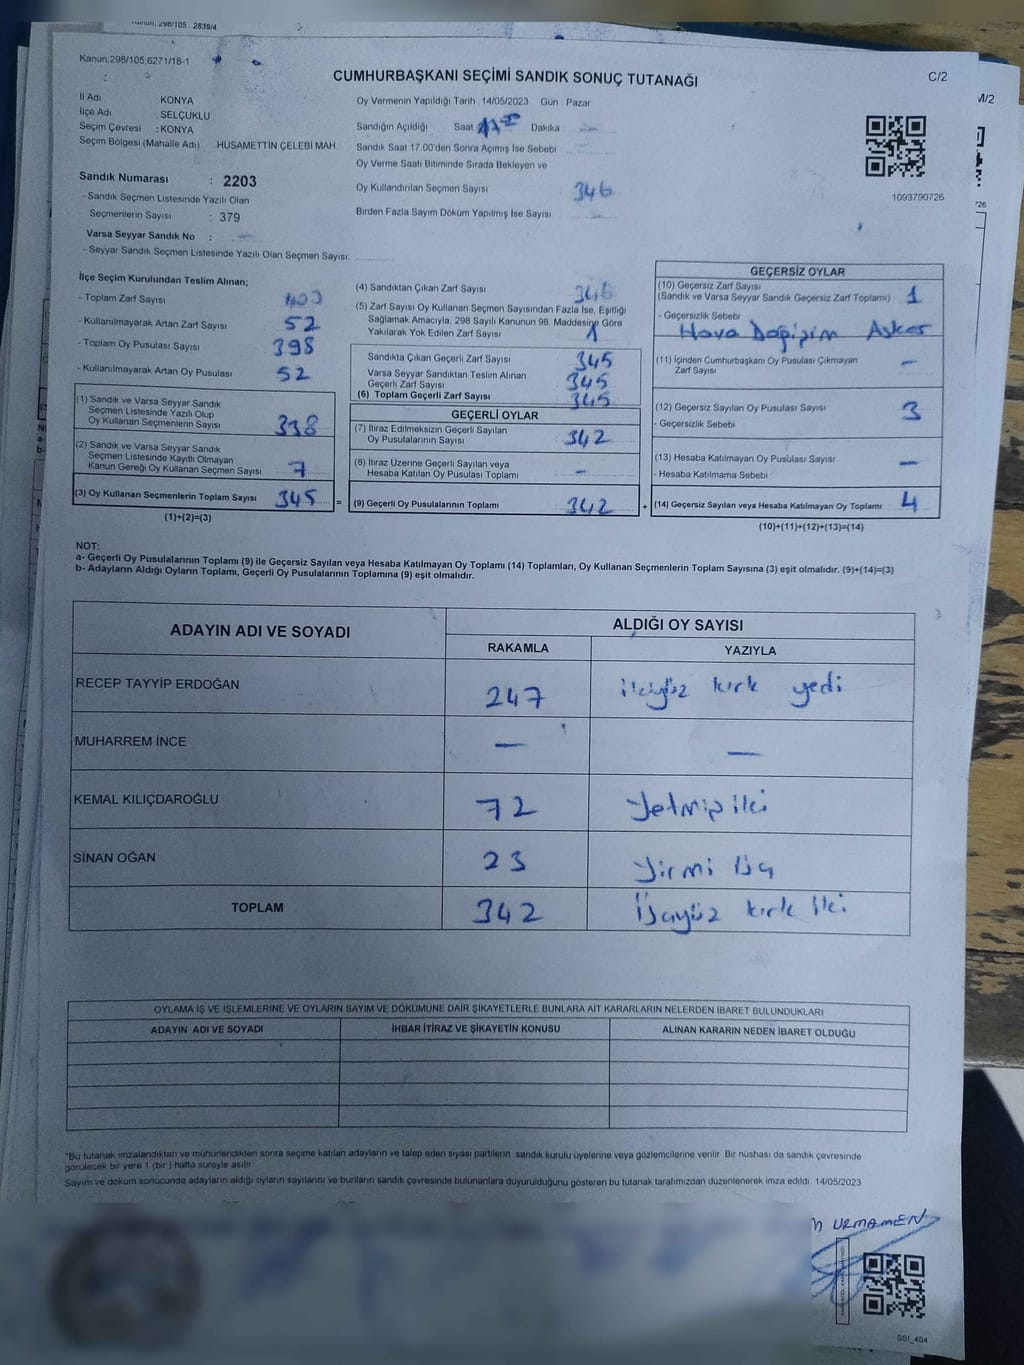 Kanun.298/105 2839/4
Kanun.298/105;6271/18-1
C/2
M/2
CUMHURBAŞKANI SEÇİMİ SANDIK SONUÇ TUTANAĞI
İl Adı : KONYA
İlçe Adı : SELÇUKLU
Seçim Çevresi : KONYA
Seçim Bölgesi (Mahalle Adı) HÜSAMETTİN ÇELEBİ MAH
Sandık Numarası : 2203
- Sandık Seçmen Listesinde Yazılı Olan
Seçmenlerin Sayısı : 379
Varsa Seyyar Sandık No :
- Seyyar Sandık Seçmen Listesinde Yazılı Olan Seçmen Sayısı:
Oy Vermenin Yapıldığı Tarih 14/05/2023 Gün Pazar
Sandığın Açıldığı Saat Dakika
Sandık Saat 17.00'den Sonra Açımış İse Sebebi
Oy Verme Saati Bitiminde Sırada Bekleyen ve
Oy Kullandırılan Seçmen Sayısı 346
Birden Fazla Sayım Döküm Yapılmış İse Sayısı
1093790726
İlçe Seçim Kurulundan Teslim Alınan;
- Toplam Zarf Sayısı 400
- Kullanılmayarak Artan Zarf Sayısı 52
- Toplam Oy Pusulası Sayısı 398
- Kullanılmayarak Artan Oy Pusulası 52
(1) Sandık ve Varsa Seyyar Sandık
Seçmen Listesinde Yazılı Olup
Oy Kullanan Seçmenlerin Sayısı 338
(2) Sandık ve Varsa Seyyar Sandık
Seçmen Listesinde Kayıtlı Olmayan
Kanun Gereği Oy Kullanan Seçmen Sayısı 7
(3) Oy Kullanan Seçmenlerin Toplam Sayısı 345 =
(1)+(2)=(3)
(4) Sandıktan Çıkan Zarf Sayısı 346
(5) Zarf Sayısı Oy Kullanan Seçmen Sayısından Fazla İse, Eşitliği
Sağlamak Amacıyla, 298 Sayılı Kanunun 98. Maddesine Göre
Yakılarak Yok Edilen Zarf Sayısı 1
Sandıkta Çıkan Geçerli Zarf Sayısı 345
Varsa Seyyar Sandıktan Teslim Alınan
Geçerli Zarf Sayısı 345
(6) Toplam Geçerli Zarf Sayısı 345
GEÇERLİ OYLAR
(7) İtiraz Edilmeksizin Geçerli Sayılan
Oy Pusulalarının Sayısı 342
(8) İtiraz Üzerine Geçerli Sayılan veya
Hesaba Katılan Oy Pusulası Toplamı –
(9) Geçerli Oy Pusulalarının Toplamı 342 +
GEÇERSİZ OYLAR
(10) Geçersiz Zarf Sayısı
(Sandık ve Varsa Seyyar Sandık Geçersiz Zarf Toplamı) 1
- Geçersizlik Sebebi
Hava Değişim Asker
(11) İçinden Cumhurbaşkanı Oy Pusulası Çıkmayan
Zarf Sayısı –
(12) Geçersiz Sayılan Oy Pusulası Sayısı 3
- Geçersizlik Sebebi
(13) Hesaba Katılmayan Oy Pusulası Sayısı –
- Hesaba Katılmama Sebebi
(14) Geçersiz Sayılan veya Hesaba Katılmayan Oy Toplamı 4
(10)+(11)+(12)+(13)=(14)
NOT:
a- Geçerli Oy Pusulalarının Toplamı (9) ile Geçersiz Sayılan veya Hesaba Katılmayan Oy Toplamı (14) Toplamları, Oy Kullanan Seçmenlerin Toplam Sayısına (3) eşit olmalıdır. (9)+(14)=(3)
b- Adayların Aldığı Oyların Toplamı, Geçerli Oy Pusulalarının Toplamına (9) eşit olmalıdır.
ADAYIN ADI VE SOYADI ALDIĞI OY SAYISI
RAKAMLA YAZIYLA
RECEP TAYYİP ERDOĞAN 247 ikiyüz kırk yedi
MUHARREM İNCE – –
KEMAL KILIÇDAROĞLU 72 Yetmiş iki
SİNAN OĞAN 23 Yirmi üç
TOPLAM 342 Üçyüz kırk iki
OYLAMA İŞ VE İŞLEMLERİNE VE OYLARIN SAYIM VE DÖKÜMÜNE DAİR ŞİKAYETLERLE BUNLARA AİT KARARLARIN NELERDEN İBARET BULUNDUKLARI
ADAYIN ADI VE SOYADI İHBAR İTİRAZ VE ŞİKAYETİN KONUSU ALINAN KARARIN NEDEN İBARET OLDUĞU
*Bu tutanak imzalandıktan ve mühürlendikten sonra seçime katılan adayların ve talep eden siyası partilerin sandık kurulu üyelerine veya gözlemcilerine verilir. Bir nüshası da sandık çevresinde
görülecek bir yere 1 (bir) hafta süreyle asılır
Sayım ve döküm sonucunda adayların aldığı oyların sayılarını ve bunların sandık çevresinde bulunanlara duyurulduğunu gösteren bu tutanak tarafımızdan düzenlenerek imza edildi. 14/05/2023
URMAMEN
SSI_404